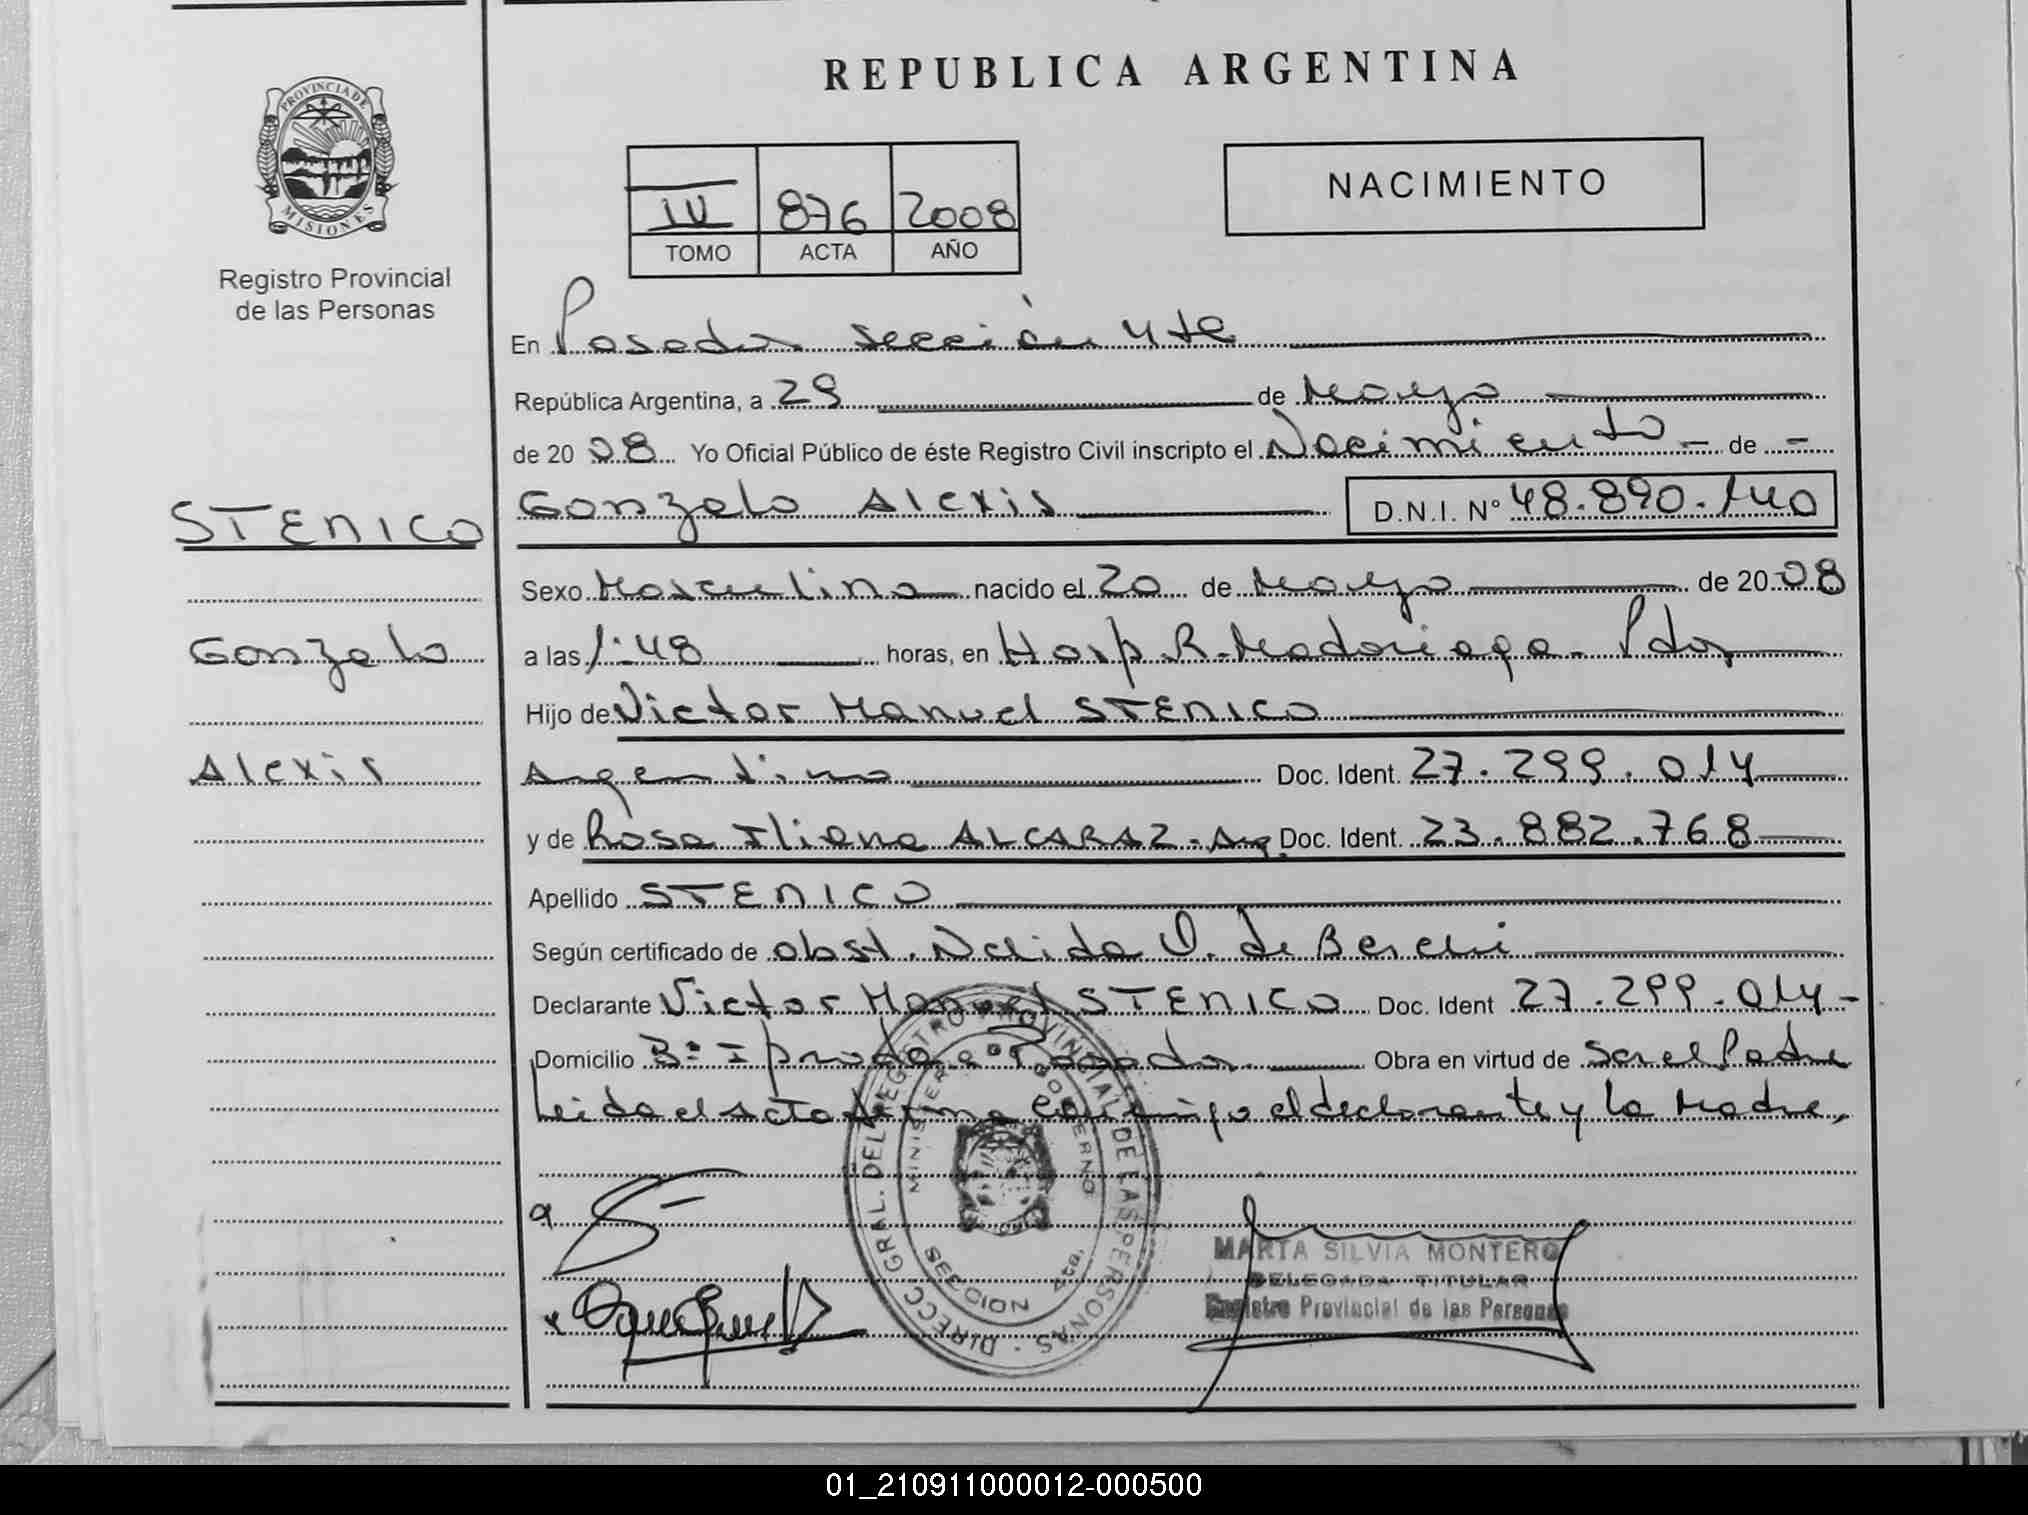 REPUBLICA ARGENTINA
PROVINCIA DE
MISIONES
Registro Provincial
de las Personas
IV 876 2008
TOMO ACTA AÑO
NACIMIENTO
En Posadas sección 4ta
República Argentina, a 29 de Mayo
de 2008 Yo Oficial Público de éste Registro Civil inscripto el Nacimiento - de -
STENICO
Gonzalo Alexis D.N.I. Nº 48.890.140
Sexo Masculino nacido el 20 de Mayo de 2008
Gonzalo
a las 1:48 horas, en Hosp. R. Madariaga - Pdas
Hijo de Victor Manuel STENICO
Alexis
Argentino Doc. Ident. 27.299.014
y de Rosa Iliana ALCARAZ - Arg. Doc. Ident. 23.882.768
Apellido STENICO
Según certificado de obst. Nelida O. de
Declarante Victor Manuel STENICO Doc. Ident 27.299.014 -
Domicilio Posadas. Obra en virtud de ser el Padre
Leida el acta firma conmigo el declarante y la Madre,
DIRECC. GRAL. DEL REGISTRO PROVINCIAL DE LAS PERSONAS
MINISTERIO GOBIERNO
SECCION 4ta.
MARTA SILVIA MONTERO
DELEGADA TITULAR
Registro Provincial de las Personas
01_210911000012-000500